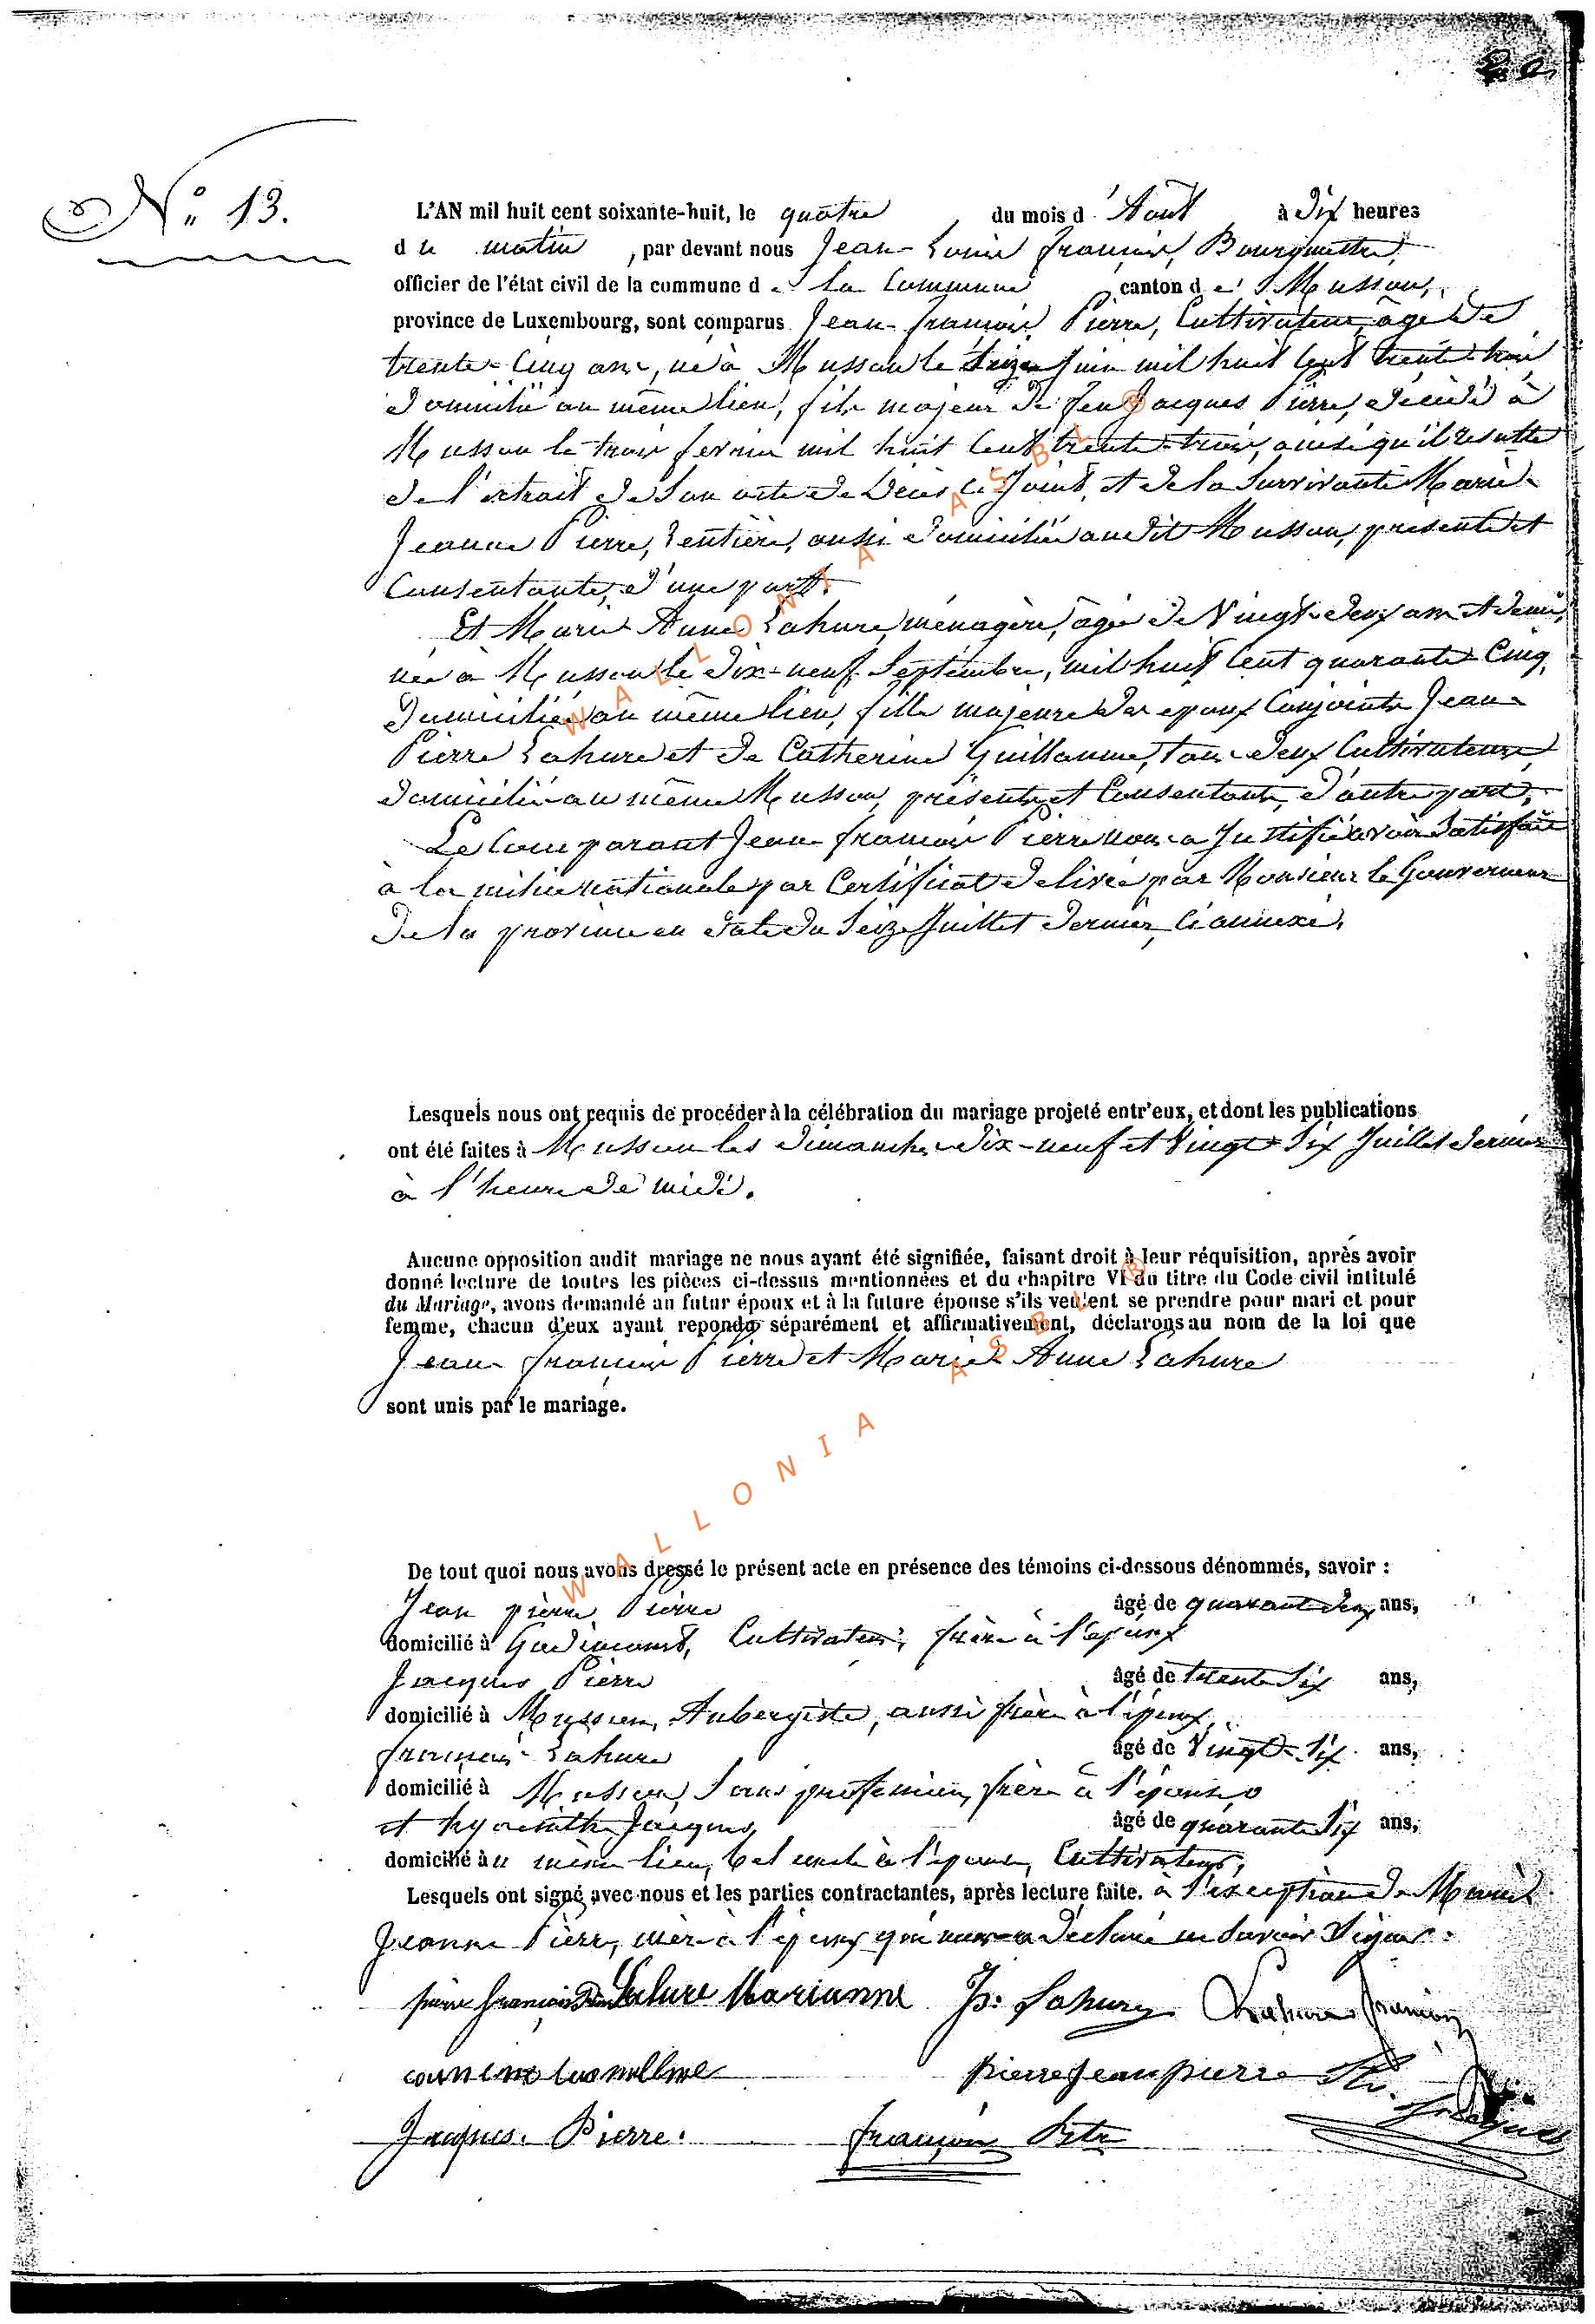 20.
N° 13.
L'AN mil huit cent soixante-huit, le quatre du mois d'Août à dix heures
du matin, par devant nous Jean-Louis François, Bourgmestre,
officier de l'état civil de la commune de la commune canton de Musson,
province de Luxembourg, sont comparus Jean-françois Pierre, Cultivateur, âgé de
trente-Cinq ans, né à Musson le Juin mil huit Cent trente-trois
domicilié au même lieu, fils majeur de feu Jacques Pierre, décédé à
Musson le trois fevrier mil huit Cent trente-trois, ainsi qu'il resulte
de l'extrait de Son acte de Décès Ci-Joint, et de la Survivante Marie-
Jeanne Pierre, rentière, aussi domiciliée audit Musson, présente et
Consentante, d'une part.
Et Marie Anne Lahure, ménagère, âgée de Vingt-deux ans et demi,
née à Musson le Dix-neuf Septembre, mil huit Cent quarante-Cinq,
domiciliée au même lieu, fille majeure des époux Conjoints Jean-
Pierre Lahure et de Catherine Guillaume, tous deux Cultivateurs,
domiciliés au même Musson, présents et Consentants, d'autre part.
Le Comparant Jean françois Pierre nous a Justifié avoir Satisfait
à la milice nationale par Certificat delivré par Monsieur le Gouverneur
De la province en date du Seize Juillet dernier, Ci annexé.
Lesquels nous ont requis de procéder à la célébration du mariage projeté entr'eux, et dont les publications
ont été faites à Musson les dimanches dix-neuf et Vingt-Six Juillet dernier
à l'heure de midi.
Aucune opposition audit mariage ne nous ayant été signifiée, faisant droit à leur réquisition, après avoir
donné lecture de toutes les pièces ci-dessus mentionnées et du chapitre VI du titre du Code civil intitulé
du Mariage, avons demandé au futur époux et à la future épouse s'ils veulent se prendre pour mari et pour
femme, chacun d'eux ayant repondu séparément et affirmativement, déclarons au nom de la loi que
Jean-françois Pierre et Marie Anne Lahure
sont unis par le mariage.
De tout quoi nous avons dressé le présent acte en présence des témoins ci-dessous dénommés, savoir :
Jean pierre Pierre âgé de quarante deux ans,
domicilié à Gorcy Cultivateur, frère à l'époux
Jacques Pierre âgé de trente Six ans,
domicilié à Musson, Aubergiste, aussi frère à l'époux,
françois Lahure âgé de Vingt-Six ans,
domicilié à Musson, Sans profession, frère à l'épouse
et hyacinthe Jacques, âgé de quarante Six ans,
domicilié au même lieu, bel oncle à l'épouse, Cultivateur,
Lesquels ont signé avec nous et les parties contractantes, après lecture faite. à l'exception de Marie
Jeanne Pierre, mère à l'époux qui nous a déclaré ne Savoir Signer.
pierre françois Jean Lahure Marianne Jp: Lahure Lahure françois
pierre Jean pierre
Jacques. Pierre. françois
WALLONIA ASBL ®
WALLONIA ASBL ®